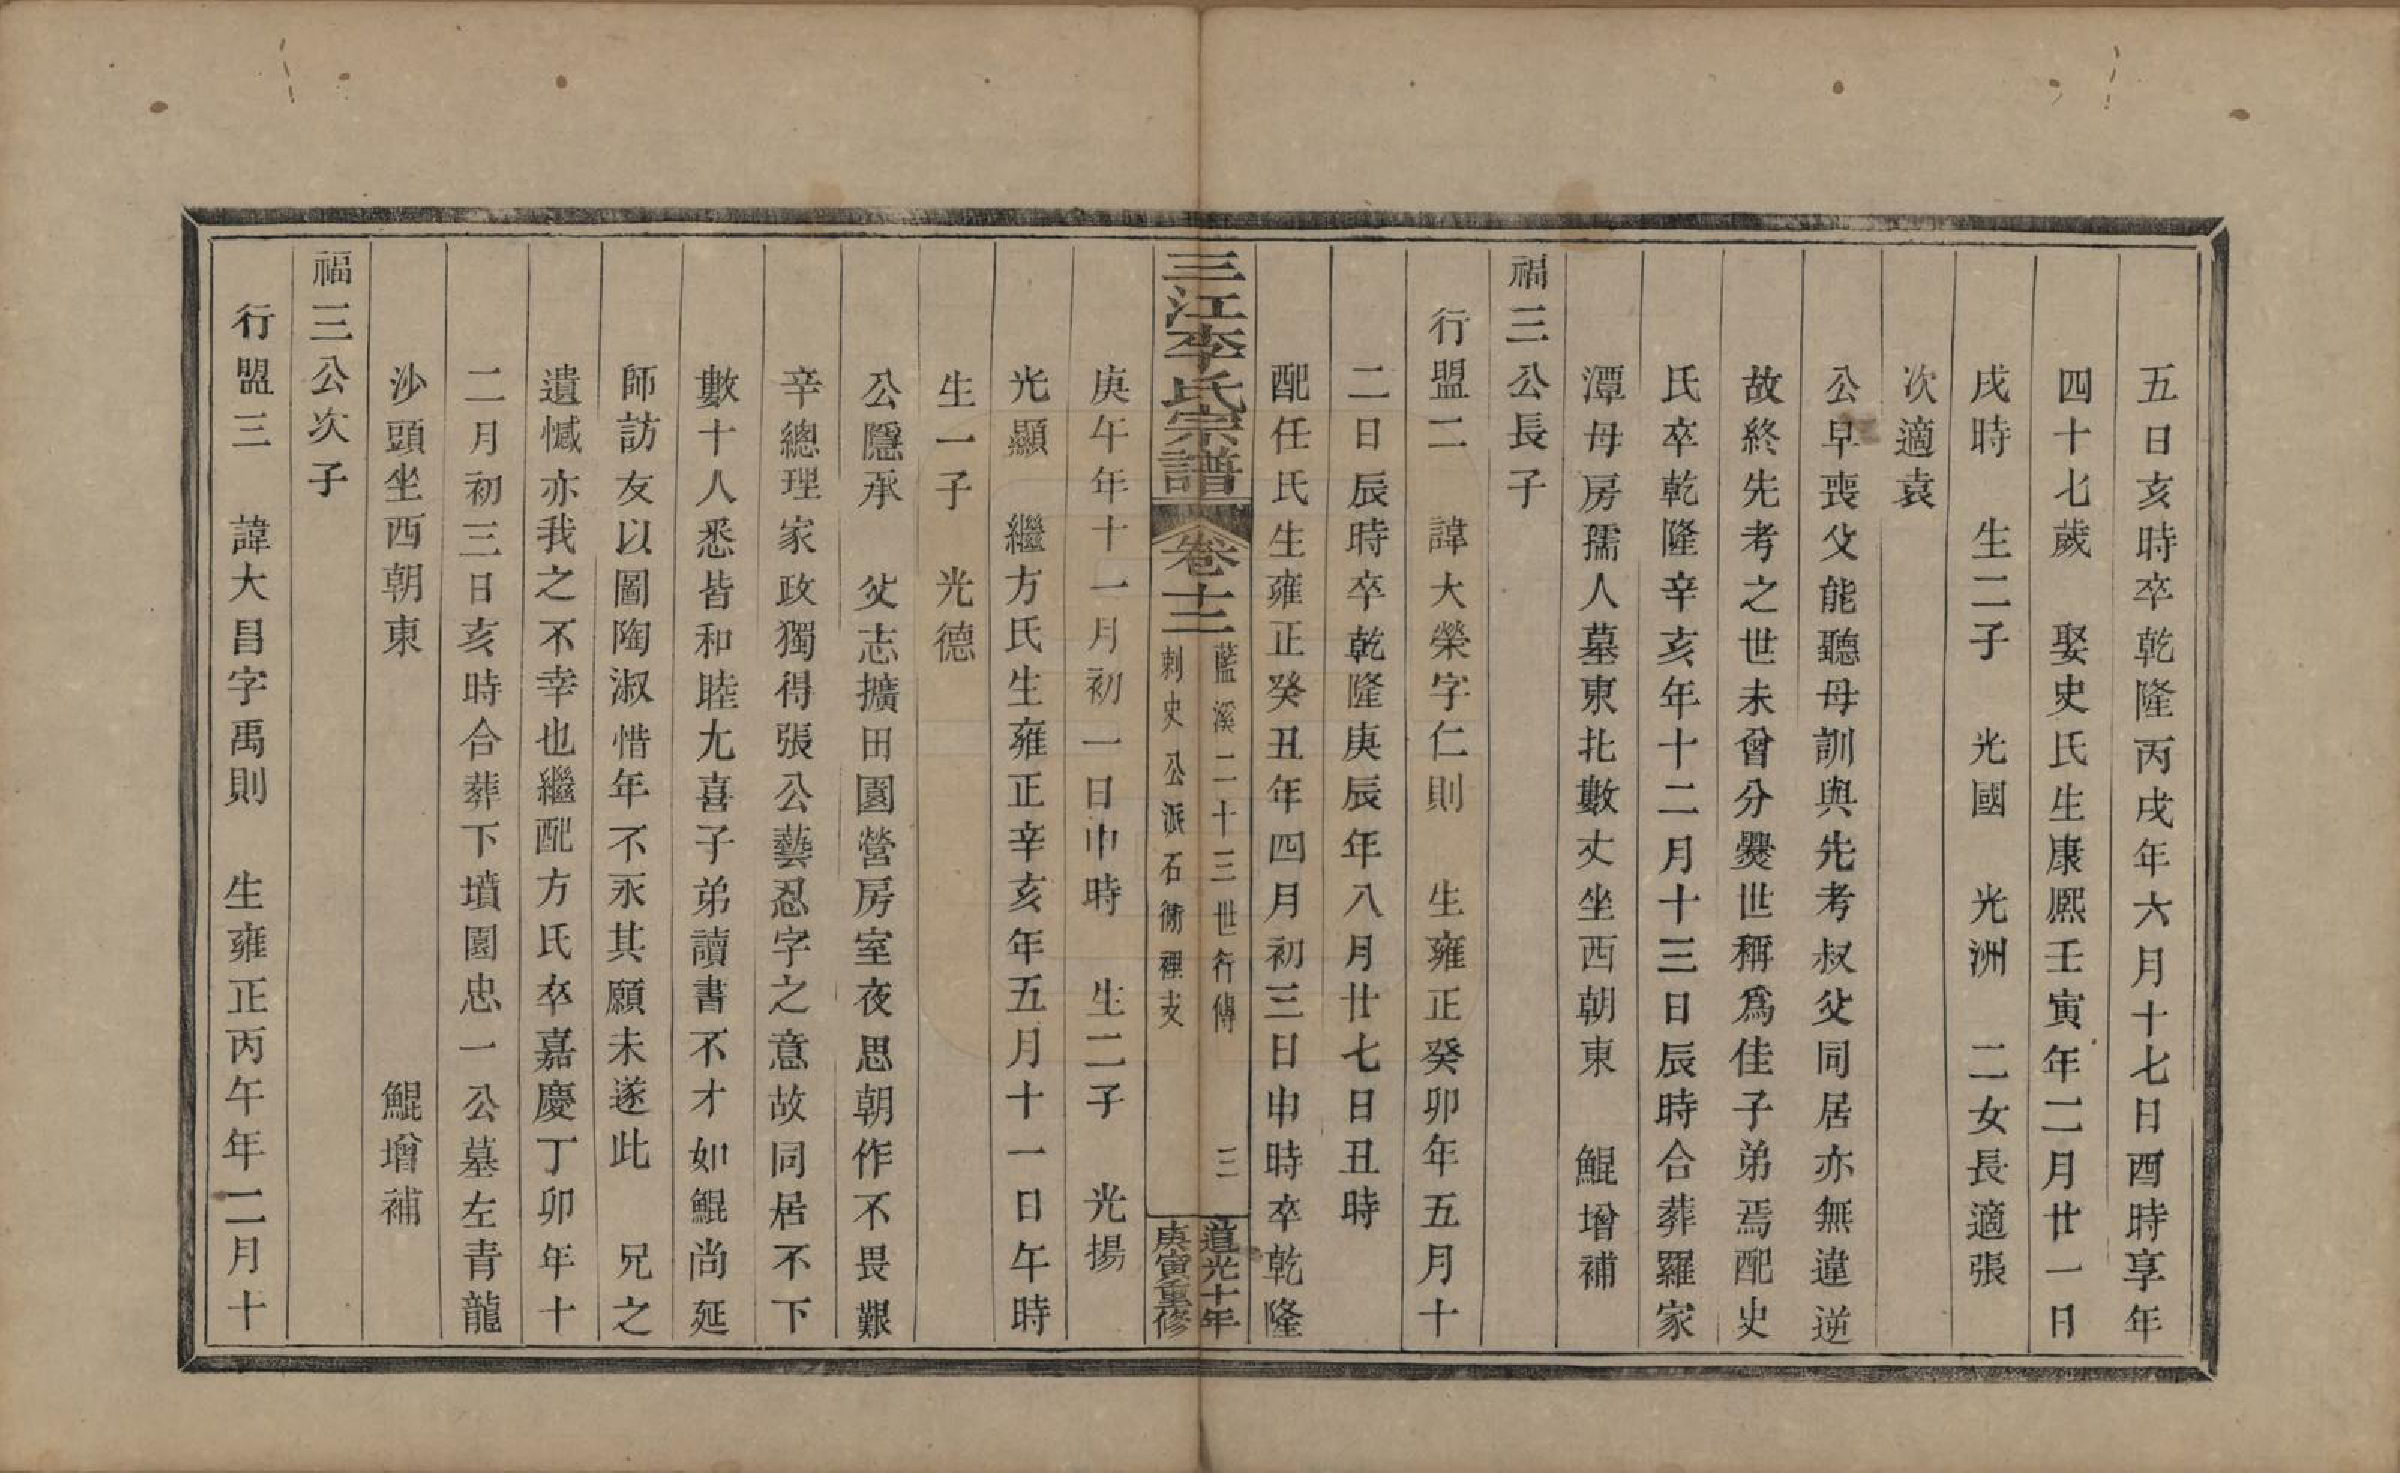 五日亥時卒乾隆丙戌年六月十七日酉時享年
四十七歲　娶史氏生康熙壬寅年二月廿一日
戌時　生二子　光國　光洲　二女長適張
次適袁
公早喪父能聽母訓與先考叔父同居亦無違逆
故終先考之世未曾分爨世稱爲佳子弟焉配史
氏卒乾隆辛亥年十二月十三日辰時合葬羅家
潭母房孺人墓東北數丈坐西朝東　鯤增補
福三公長子
行盟二　諱大榮字仁則　生雍正癸卯年五月十
二日辰時卒乾隆庚辰年八月廿七日丑時
配任氏生雍正癸丑年四月初三日申時卒乾隆
三江李氏宗譜　卷十二　藍溪二十三世行傳　三
刺史公派石衕裡支
道光十年
庚寅重修
庚午年十一月初一日巾時　生二子　光揚
光顯　繼方氏生雍正辛亥年五月十一日午時
生一子　光德
公隱承　父志擴田園營房室夜思朝作不畏艱
辛總理家政獨得張公藝忍字之意故同居不下
數十人悉皆和睦尢喜子弟讀書不才如鯤尚延
師訪友以圖陶淑惜年不永其願未遂此　兄之
遺憾亦我之不幸也繼配方氏卒嘉慶丁卯年十
二月初三日亥時合葬下墳園忠一公墓左青龍
沙頭坐西朝東　鯤增補
福三公次子
行盟三　諱大昌字禹則　生雍正丙午年二月十